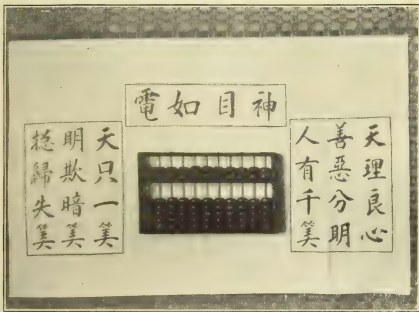 神目如電
天理良心
善惡分明
人有千筭
天只一筭
明欺暗筭
揔歸失筭